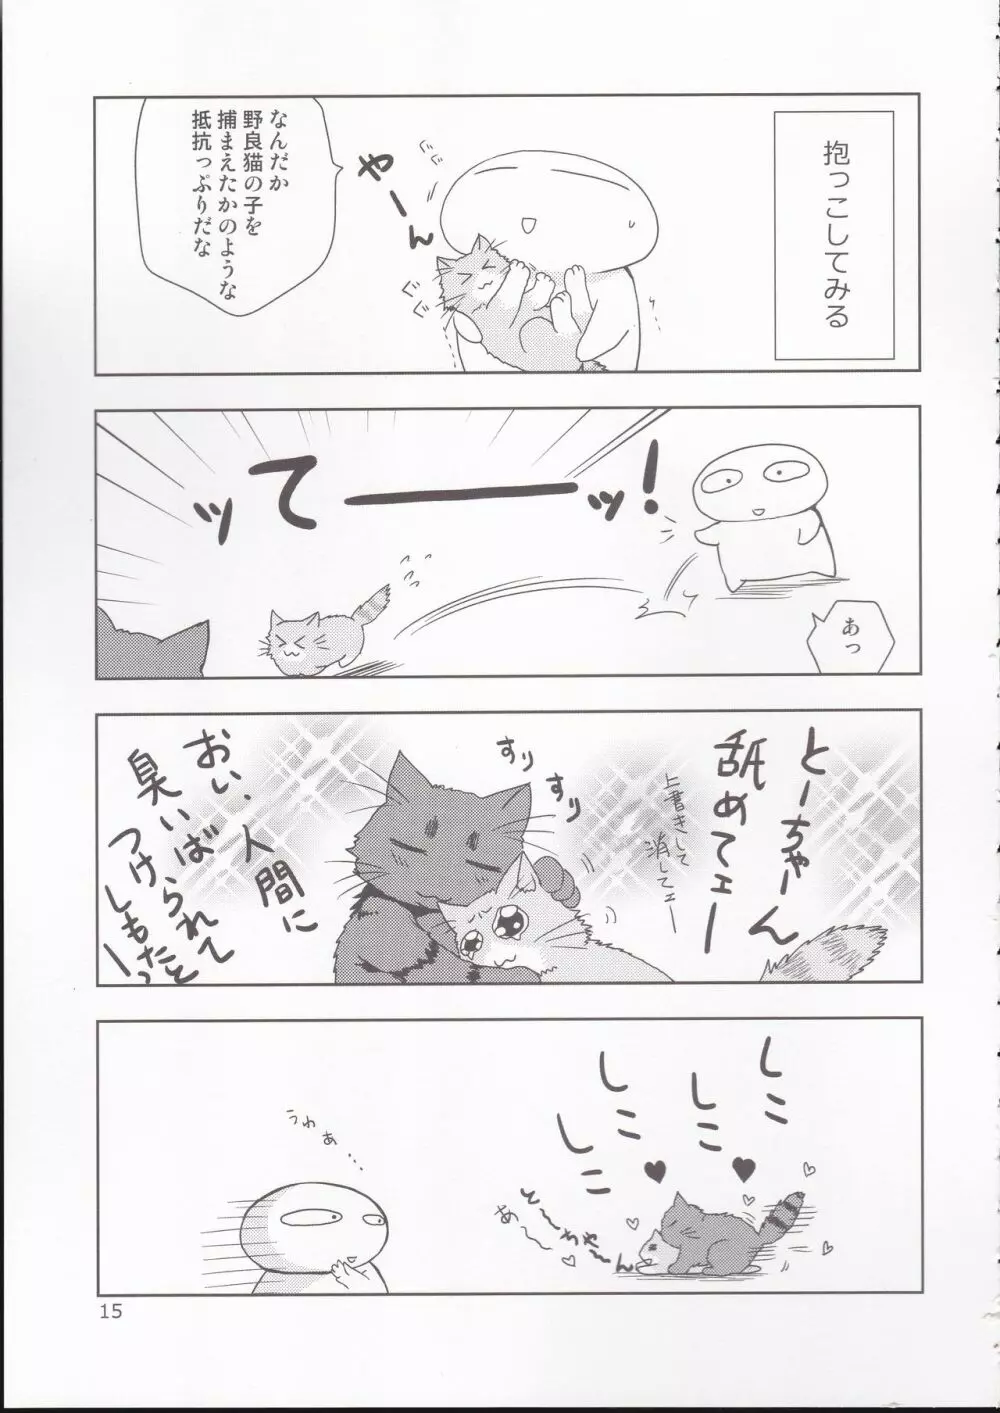 抱っこしてみる
やーん
ぐぐ
ぐぐ
なんだか
野良猫の子を
捕まえたかのような
抵抗っぷりだな
ッてーーーッ!
あっ
とーちゃーん
舐めてェー
上書きして
消してェー
すり
すり
おい、人間に
臭いば
つけられて
しもたっ
しこ
しこ
しこ
しこ
とーちゃーん
あ〜〜
うわぁ…
15